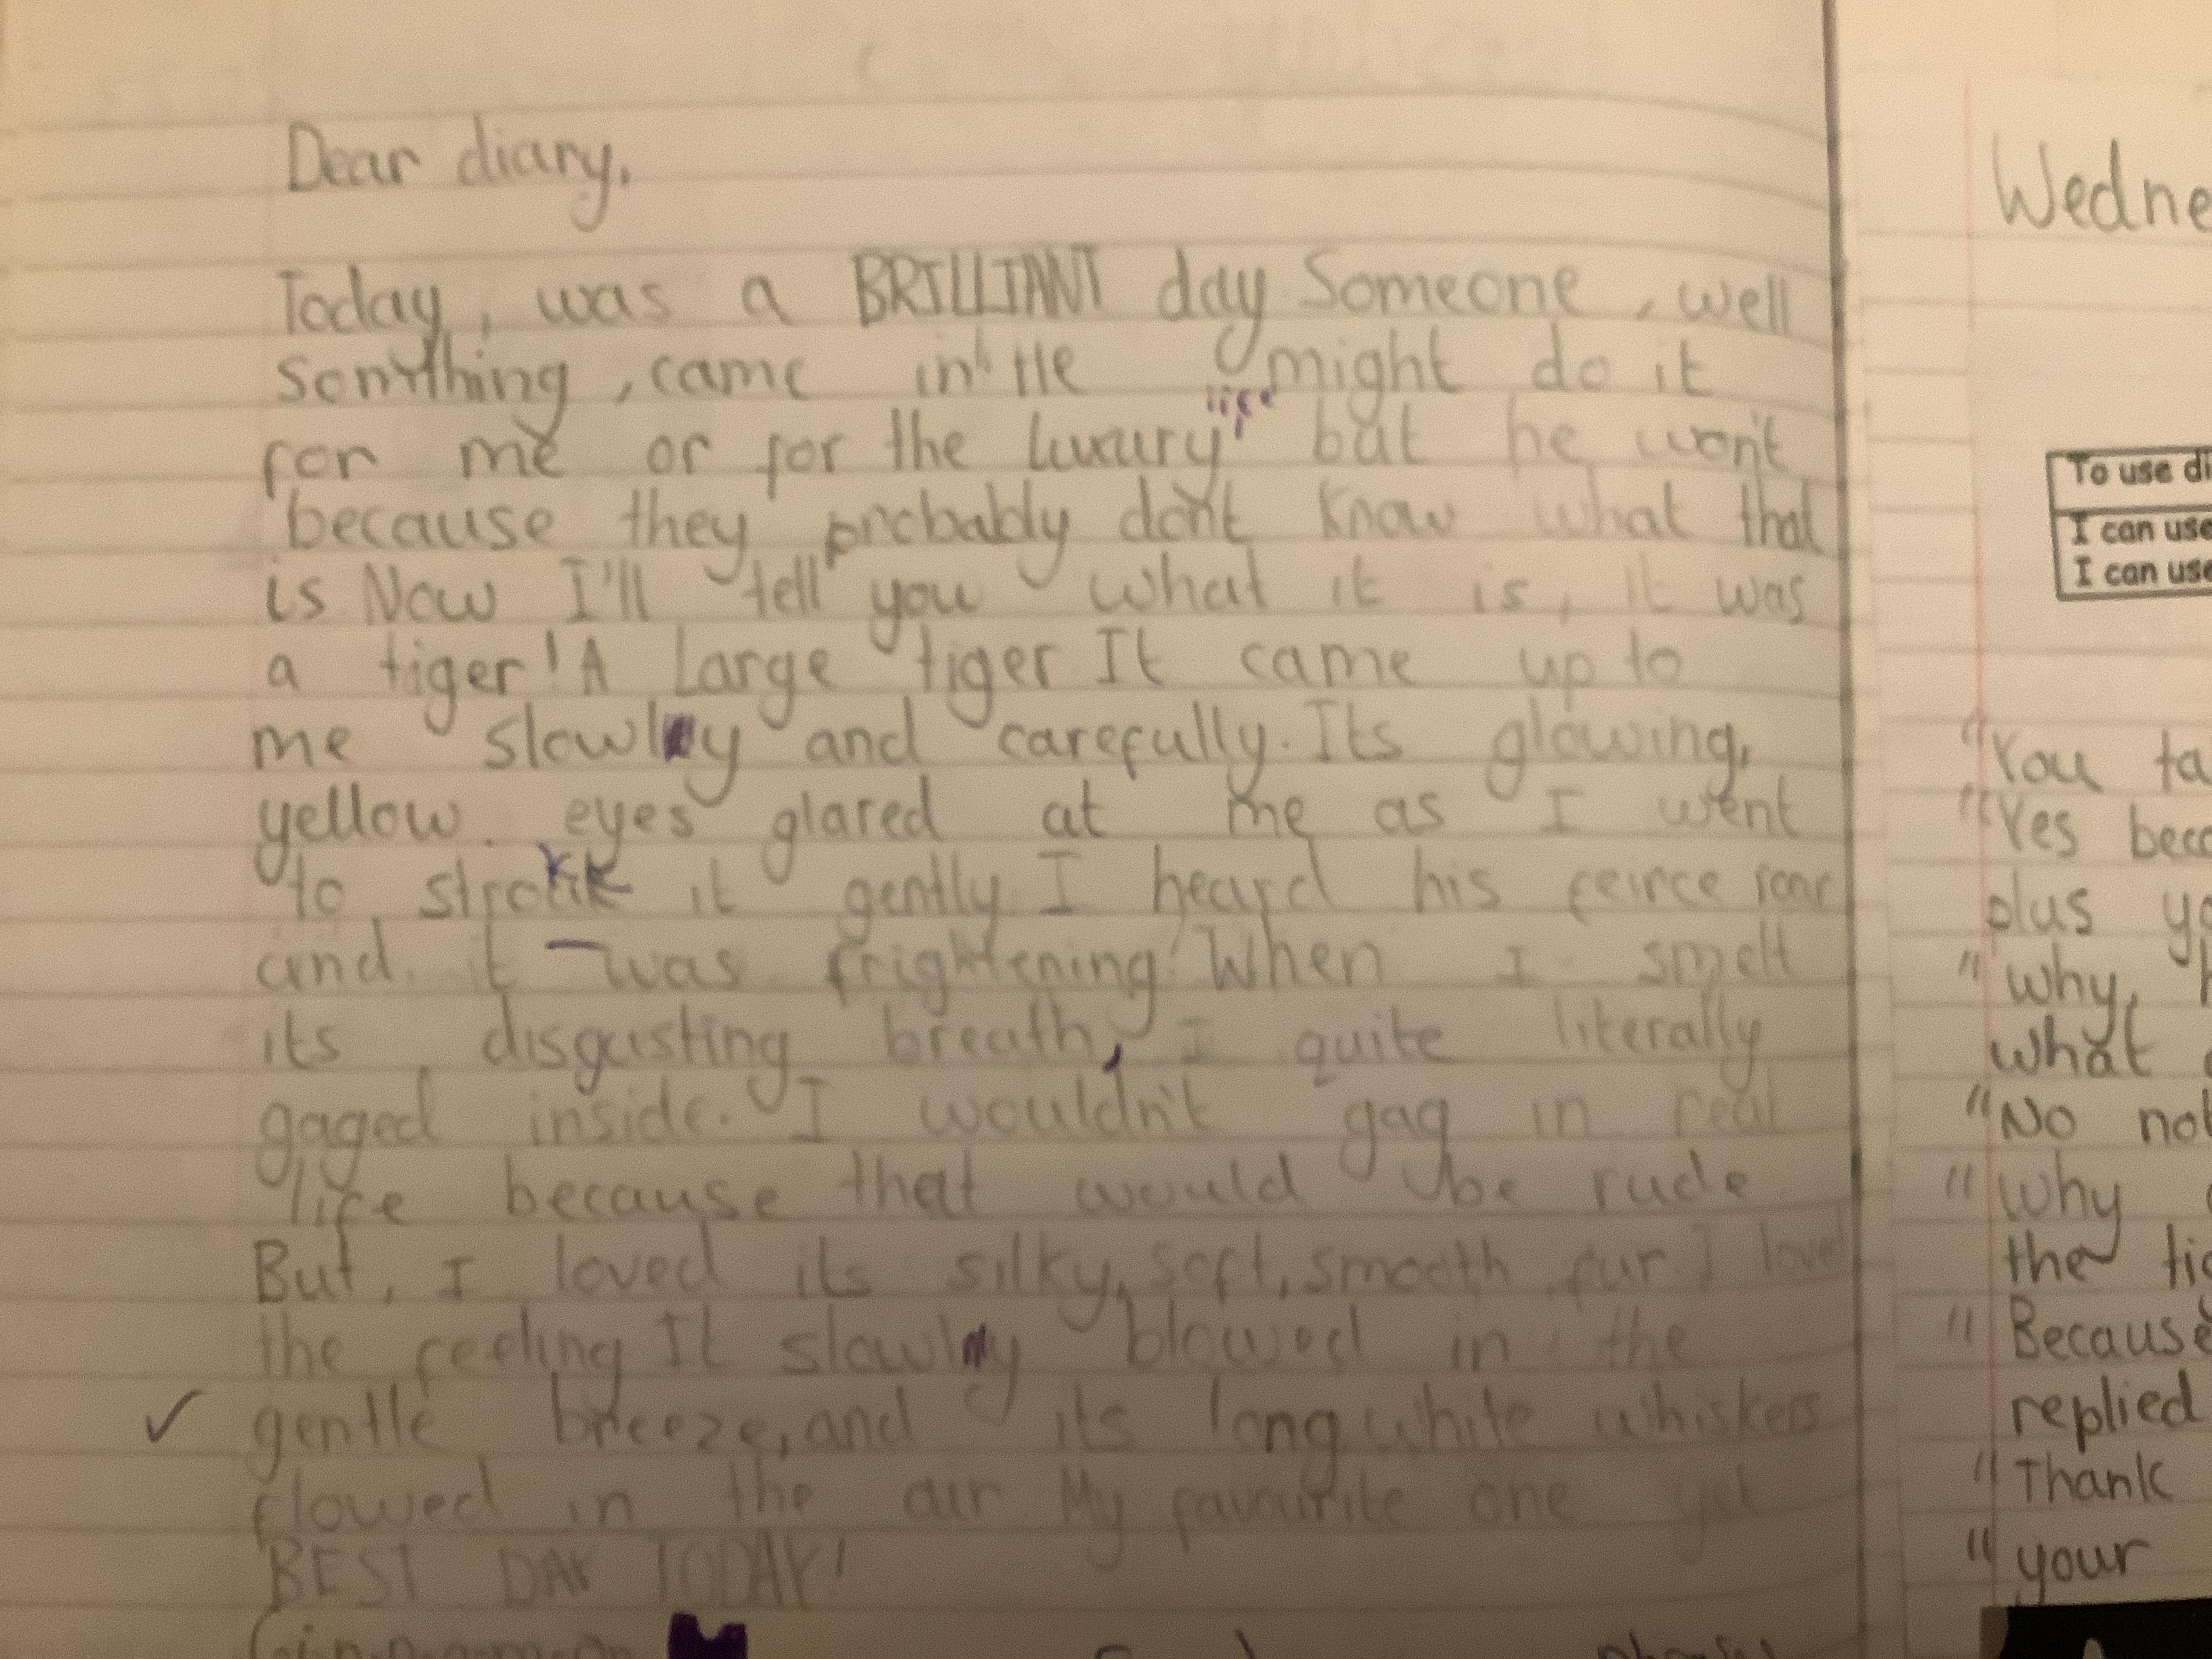 Dear diary,
Today, was a BRILLIANT day Someone, well
somthing, came in He might do it
for me or for the luxury life but he won't
because they probably don't know what that
is Now I'll tell you what it is, it was
a tiger! A Large tiger It came up to
me slowly and carefully. Its glowing,
yellow eyes glared at me as I went
to it gently. I heard his feirce roar
and it was frightening! When I smelt
its disgusting breath, I quite literally
gaged inside. I wouldn't gag in real
life because that would be rude
But, I loved its silky, soft, smooth fur. I loved
the feeling It slowly blowed in the
gentle breeze, and its long white whiskers
flowed in the air My favourite one yet
BEST DAY TODAY!
Wedne
To use di
I can use
I can use
"You ta
"Yes beca
plus yo
"why, h
what
"No not
"why
the tig
"Because
replied
"Thank
"your